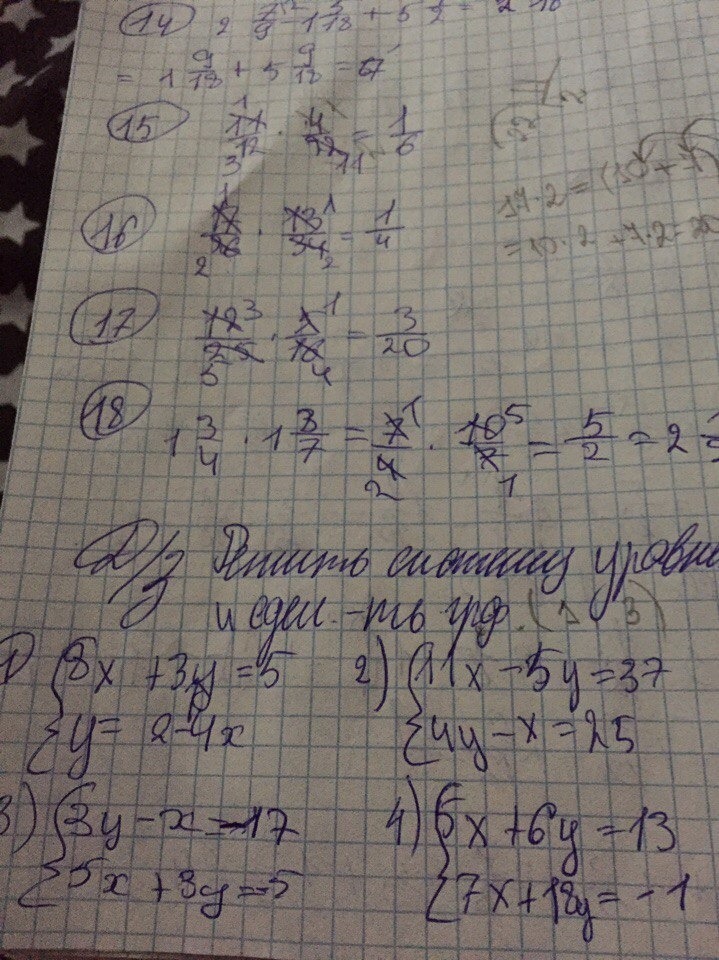 14
= 1 9/18 + 5 9/18 = 67
15 11/12 · 4/22 = 1/6
16 · 13/34 = 1/4
17 12/25 · /16 = 3/20
18 1 3/4 · 1 3/7 = 7/4 · 10/7 = 5/2 = 2
17·2 =
= 10·2 + 7·2 =
Д/З Решить систему уравне
и сдел. -ть грф.
1) { 8x + 3y = 5
{ y = 2 - 4x
2) { 11x - 5y = 37
{ 4y - x = 25
3) { 3y - x = -17
{ 5x + 3y = -5
4) { 5x + 6y = 13
{ 7x + 18y = -1